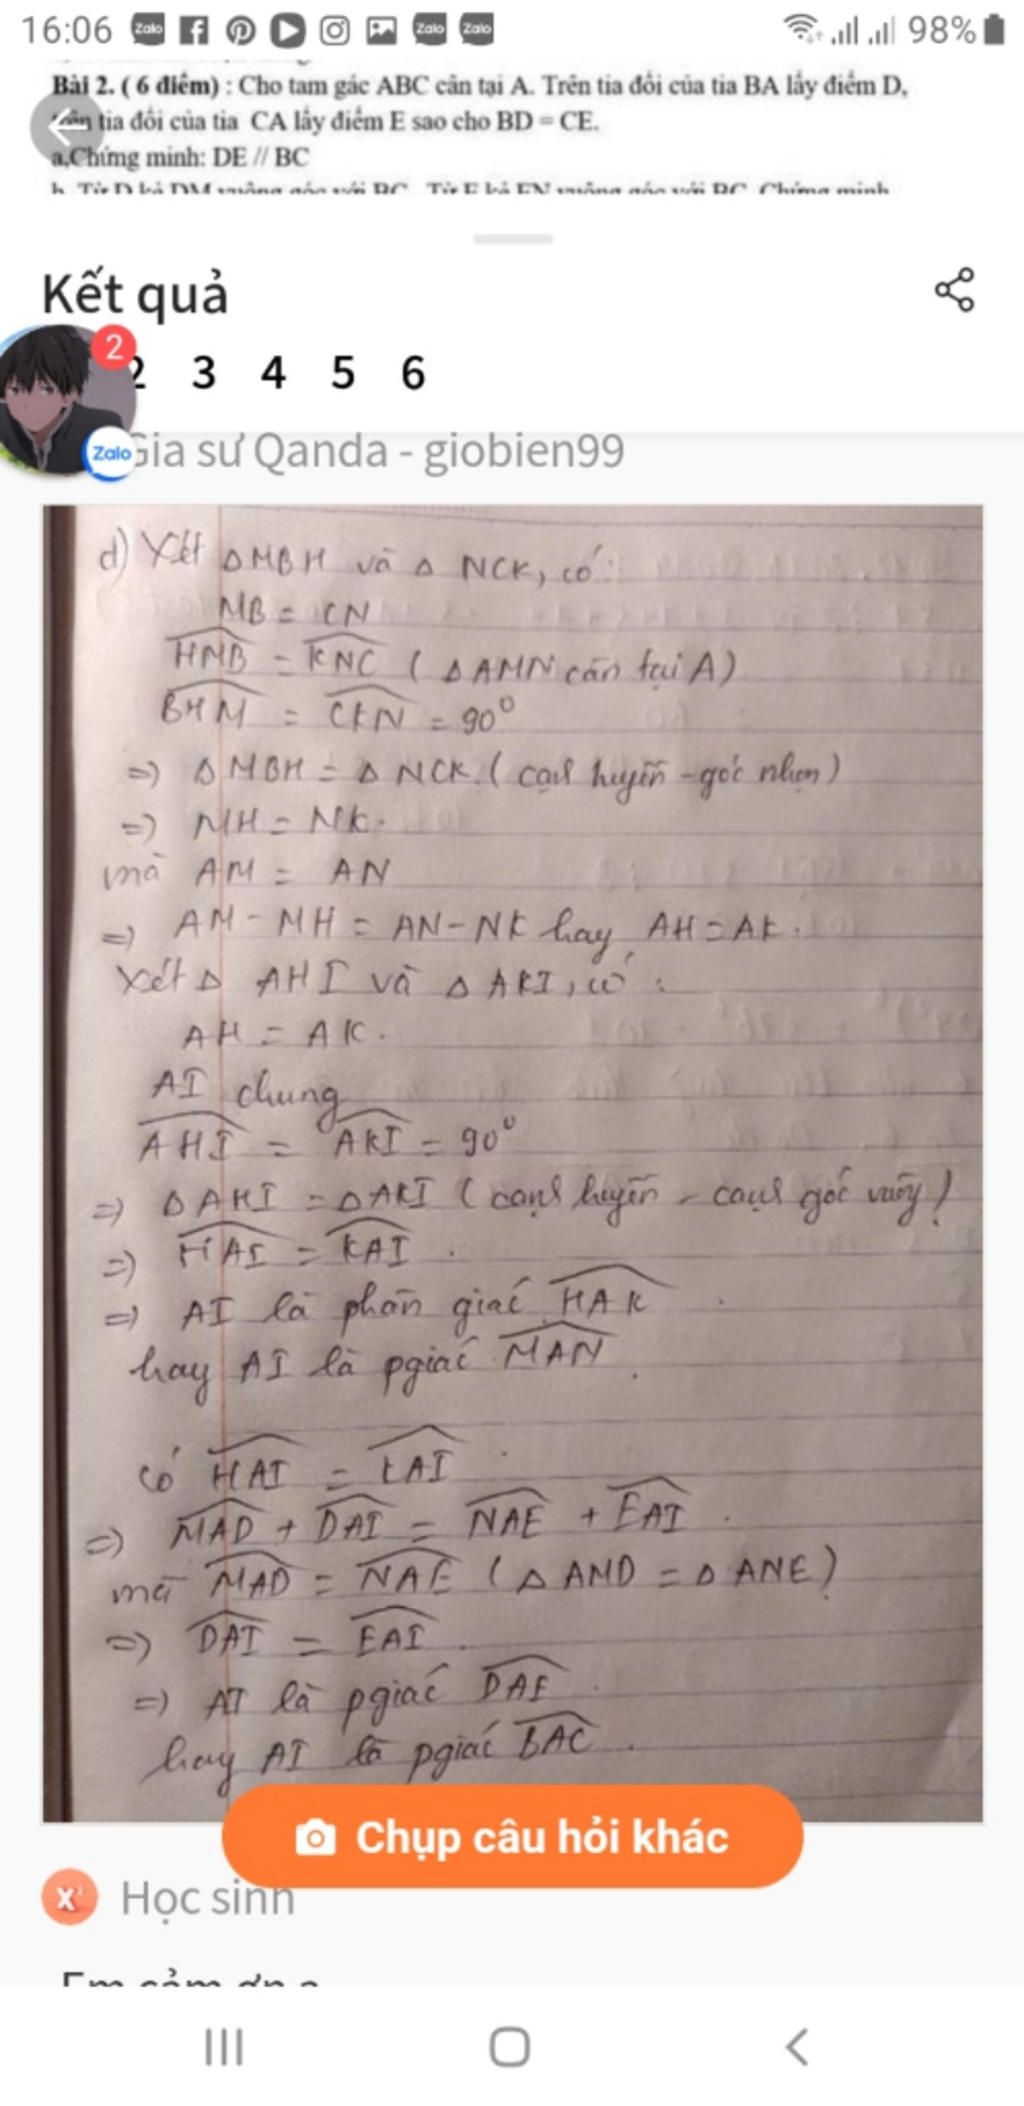 16:06 Zalo Zalo Zalo 98%
Bài 2. ( 6 điểm) : Cho tam gác ABC cân tại A. Trên tia đối của tia BA lấy điểm D,
tia đối của tia CA lấy điểm E sao cho BD = CE.
a,Chứng minh: DE // BC
b. Từ D kẻ DM vuông góc với BC. Từ E kẻ EN vuông góc với BC. Chứng minh
Kết quả
2
2 3 4 5 6
Zalo Gia sư Qanda - giobien99
d) Xét △MBH và △ NCK, có:
MB = CN
HMB = KNC (△AMN cân tại A)
BHM = CKN = 90°
=> △MBH = △NCK. (cạnh huyền - góc nhọn)
=> MH = NK.
mà AM = AN
=> AM - MH = AN - NK hay AH = AK.
Xét △ AHI và △ AKI, có:
AH = AK.
AI chung
AHI = AKI = 90°
=> △AHI = △AKI (cạnh huyền - cạnh góc vuông)
=> HAI = KAI.
=> AI là phân giác HAK
hay AI là pgiác MAN.
có HAI = KAI.
=> MAD + DAI = NAE + EAI.
mà MAD = NAE (△ AMD = △ ANE)
=> DAI = EAI.
=> AI là pgiác DAE.
hay AI là pgiác BAC.
Chụp câu hỏi khác
X² Học sinh
Em cảm ơn ạ